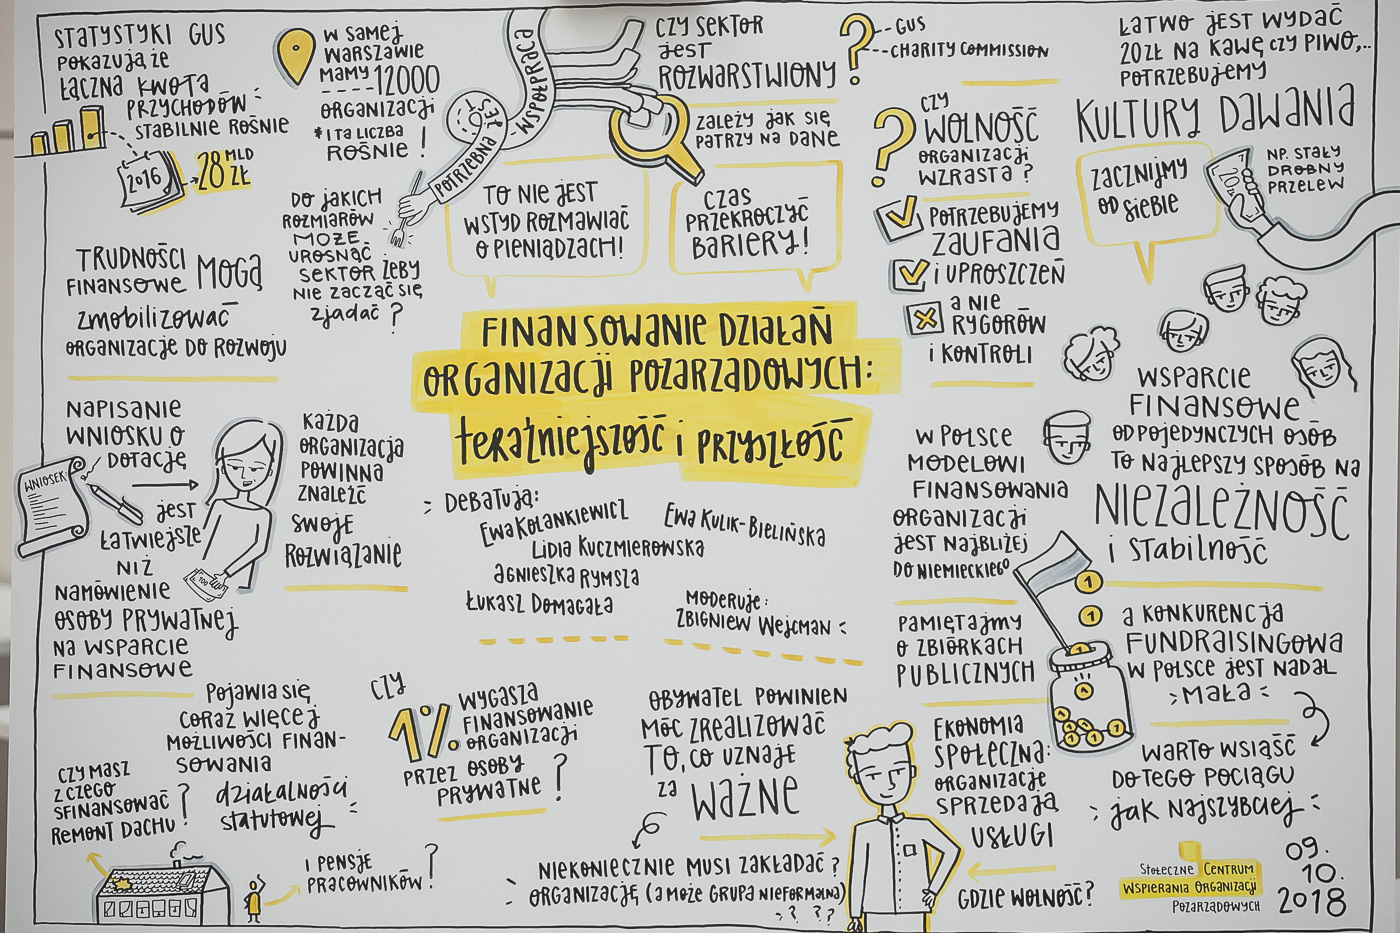 STATYSTYKI GUS
POKAZUJĄ ŻE
ŁĄCZNA KWOTA
PRZYCHODÓW
STABILNIE ROŚNIE
2016
28 MLD
ZŁ
W SAMEJ
WARSZAWIE
MAMY 12000
ORGANIZACJI
* I TA LICZBA
ROŚNIE!
POTRZEBNA JEST
WSPÓŁPRACA
CZY SEKTOR
JEST
ROZWARSTWIONY?
GUS
CHARITY COMMISSION
ZALEŻY JAK SIĘ
PATRZY NA DANE
ŁATWO JEST WYDAĆ
20ZŁ NA KAWĘ CZY PIWO,...
POTRZEBUJEMY
KULTURY DAWANIA
ZACZNIJMY
OD SIEBIE
20
NP. STAŁY
DROBNY
PRZELEW
?
CZY
WOLNOŚĆ
ORGANIZACJI
WZRASTA?
POTRZEBUJEMY
ZAUFANIA
i UPROSZCZEŃ
A NIE
RYGORÓW
i KONTROLI
DO JAKICH
ROZMIARÓW
MOŻE
UROSNĄĆ
SEKTOR ŻEBY
NIE ZACZĄĆ SIĘ
ZJADAĆ?
TO NIE JEST
WSTYD ROZMAWIAĆ
O PIENIĄDZACH!
CZAS
PRZEKROCZYĆ
BARIERY!
TRUDNOŚCI
FINANSOWE MOGĄ
ZMOBILIZOWAĆ
ORGANIZACJE DO ROZWOJU
FINANSOWANIE DZIAŁAŃ
ORGANIZACJI POZARZĄDOWYCH:
TERAŹNIEJSZOŚĆ i PRZYSZŁOŚĆ
NAPISANIE
WNIOSKU O
DOTACJĘ
WNIOSEK
JEST
ŁATWIEJSZE
NIŻ
NAMÓWIENIE
OSOBY PRYWATNEJ
NA WSPARCIE
FINANSOWE
100
KAŻDA
ORGANIZACJA
POWINNA
ZNALEŹĆ
SWOJE
ROZWIĄZANIE
DEBATUJĄ:
EWA KOLANKIEWICZ
LIDIA KUCZMIEROWSKA
AGNIESZKA RYMSZA
ŁUKASZ DOMAGAŁA
EWA KULIK-BIELIŃSKA
MODERUJE:
ZBIGNIEW WEJCMAN
W POLSCE
MODELOWI
FINANSOWANIA
ORGANIZACJI
JEST NAJBLIŻEJ
DO NIEMIECKIEGO
WSPARCIE
FINANSOWE
OD POJEDYNCZYCH OSÓB
TO NAJLEPSZY SPOSÓB NA
NIEZALEŻNOŚĆ
i STABILNOŚĆ
PAMIĘTAJMY
O ZBIÓRKACH
PUBLICZNYCH
1
1
A KONKURENCJA
FUNDRAISINGOWA
W POLSCE JEST NADAL
MAŁA
WARTO WSIĄŚĆ
DO TEGO POCIĄGU
JAK NAJSZYBCIEJ
POJAWIA SIĘ
CORAZ WIĘCEJ
MOŻLIWOŚCI FINAN-
SOWANIA
DZIAŁALNOŚCI
STATUTOWEJ
CZY MASZ
Z CZEGO
SFINANSOWAĆ
REMONT DACHU?
I PENSJE
PRACOWNIKÓW?
CZY
1%
WYGASZA
FINANSOWANIE
ORGANIZACJI
PRZEZ OSOBY
PRYWATNE?
OBYWATEL POWINIEN
MÓC ZREALIZOWAĆ
TO, CO UZNAJE
ZA WAŻNE
NIEKONIECZNIE MUSI ZAKŁADAĆ?
ORGANIZACJĘ (A MOŻE GRUPA NIEFORMALNA)
? ? ?
EKONOMIA
SPOŁECZNA:
ORGANIZACJE
SPRZEDAJĄ
USŁUGI
GDZIE WOLNOŚĆ?
STOŁECZNE CENTRUM
WSPIERANIA ORGANIZACJI
POZARZĄDOWYCH
09.
10.
2018